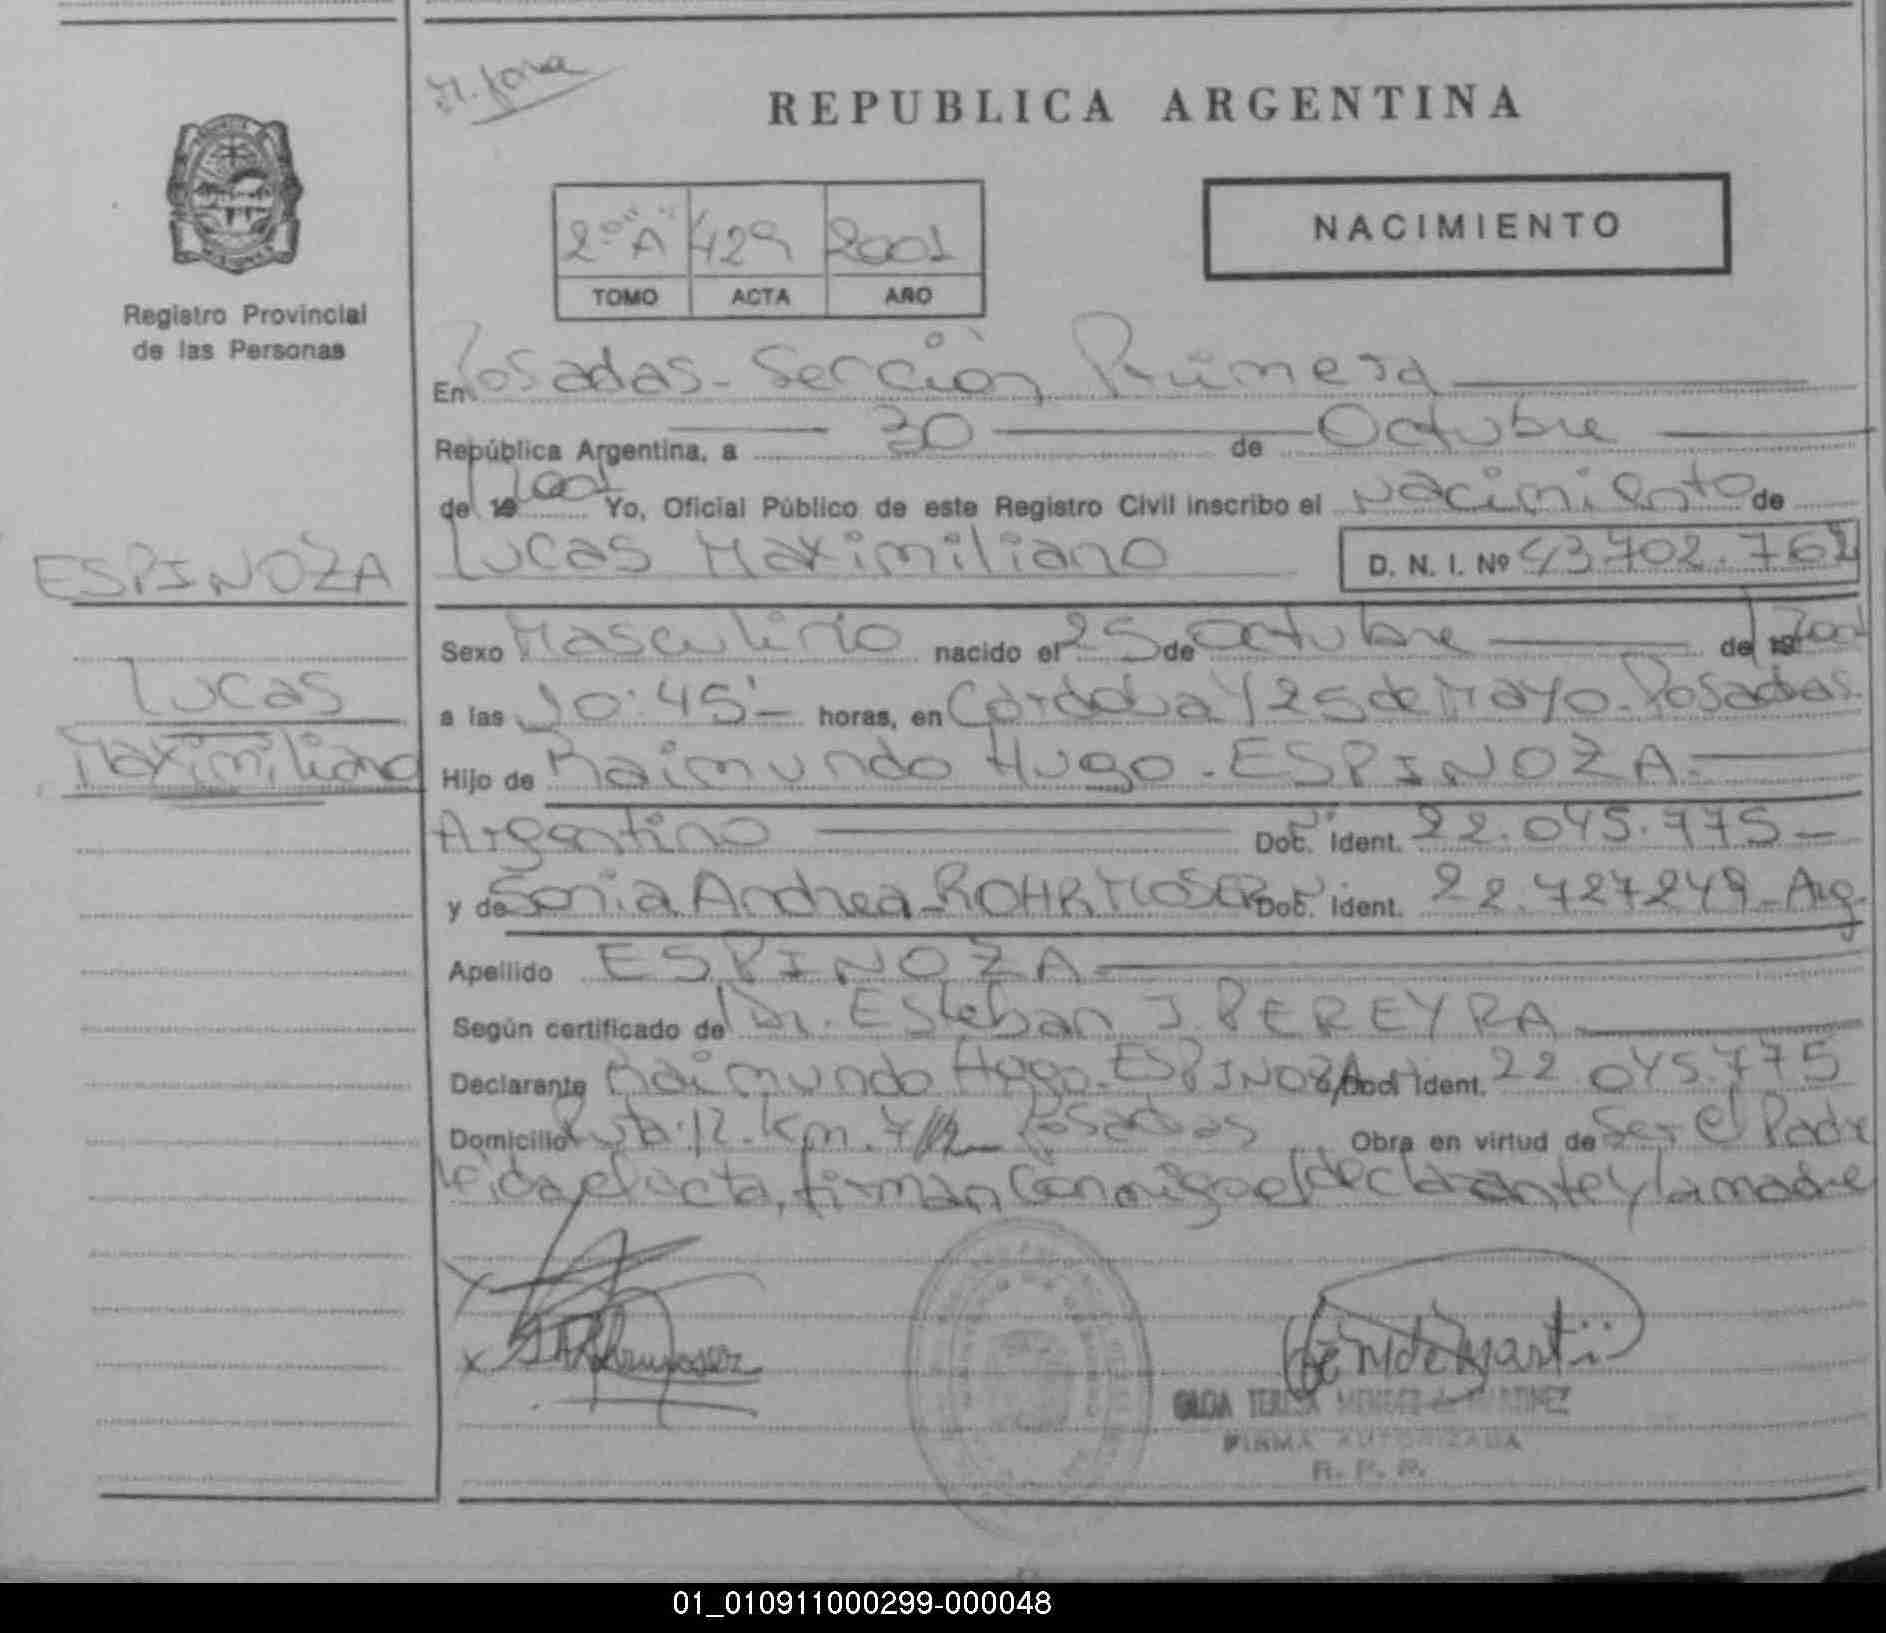 REPUBLICA ARGENTINA
2º "A" 429 2001
TOMO ACTA AÑO
NACIMIENTO
Registro Provincial
de las Personas
En Posadas - Sección Primera
República Argentina, a 30 de Octubre
de 19 2001 Yo, Oficial Público de este Registro Civil inscribo el Nacimiento de
ESPINOZA
Lucas Maximiliano D. N. I. Nº 43.702.762
Lucas
Maximiliano
Sexo Masculino nacido el 25 de Octubre de 19 2001
a las 10:45'- horas, en Córdoba y 25 de Mayo - Posadas.
Hijo de Raimundo Hugo - ESPINOZA.
Argentino Doc. Ident. 22.045.775 -
y de Sonia Andrea - ROHRMOSER Doc. Ident. 22.727249 - Arg.
Apellido ESPINOZA
Según certificado de Dr. Esteban J. PEREYRA
Declarante Raimundo Hugo - ESPINOZA Doc. Ident. 22.045.775
Domicilio Ruta 12 - Km. 7 1/2 - Posadas Obra en virtud de Ser el Padre
leída el acta, firman conmigo el declarante y la madre
GILDA TERESA MENDEZ de MARTINEZ
FIRMA AUTORIZADA
R. P. P.
01_010911000299-000048